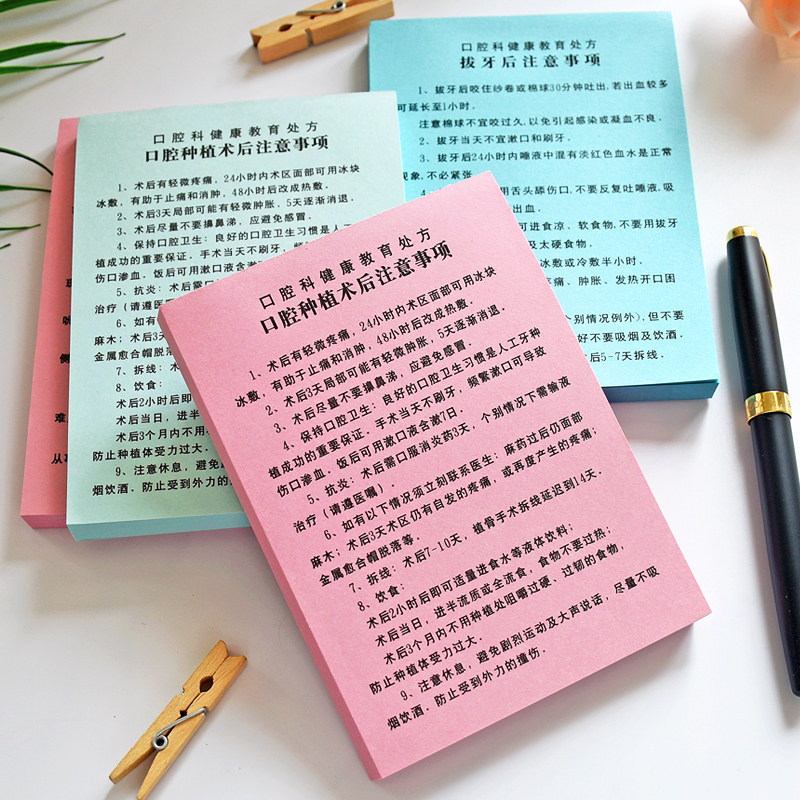 口腔科健康教育处方
口腔种植术后注意事项
1、术后有轻微疼痛，24小时内术区面部可用冰块
冰敷，有助于止痛和消肿，48小时后改成热敷．
2、术后3天局部可能有轻微肿胀、5天逐渐消退．
3、术后尽量不要擤鼻涕，应避免感冒．
4、保持口腔卫生：良好的口腔卫生习惯是人工
植成功的重要保证．手术当天不刷牙，
伤口渗血．饭后可用漱口液含漱
5、抗炎：术后需口
治疗（请遵医
6、如有
麻木；术后3天
金属愈合帽脱落
7、拆线：术
8、饮食：
术后2小时后即
术后当日，进半
术后3个月内不用
防止种植体受力过大．
9、注意休息，避免剧
烟饮酒．防止受到外力的
口腔科健康教育处方
拔牙后注意事项
1、拔牙后咬住纱卷或棉球30分钟吐出，若出血较多
可延长至1小时．
注意棉球不宜咬过久，以免引起感染或凝血不良．
2、拔牙当天不宜漱口和刷牙．
3、拔牙后24小时内唾液中混有淡红色血水是正常
现象，不必紧张．
用舌头舔伤口，不要反复吐唾液，吸
出血．
可进食凉、软食物，不要用拔牙
及太硬食物．
冰敷或冷敷半小时．
疼痛、肿胀、发热开口困
个别情况例外），但不要
好不要吸烟及饮酒．
后5-7天拆线．
口腔科健康教育处方
口腔种植术后注意事项
1、术后有轻微疼痛，24小时内术区面部可用冰块
冰敷，有助于止痛和消肿，48小时后改成热敷．
2、术后3天局部可能有轻微肿胀、5天逐渐消退．
3、术后尽量不要擤鼻涕，应避免感冒．
4、保持口腔卫生：良好的口腔卫生习惯是人工牙种
植成功的重要保证．手术当天不刷牙，频繁漱口可导致
伤口渗血．饭后可用漱口液含漱7日．
5、抗炎：术后需口服消炎药3天．个别情况下需输液
治疗（请遵医嘱）．
6、如有以下情况须立刻联系医生：麻药过后仍面部
麻木；术后3天术区仍有自发的疼痛，或再度产生的疼痛；
金属愈合帽脱落等．
7、拆线：术后7-10天，植骨手术拆线延迟到14天．
8、饮食：
术后2小时后即可适量进食水等液体饮料；
术后当日，进半流质或全流食，食物不要过热；
术后3个月内不用种植处咀嚼过硬、过韧的食物，
防止种植体受力过大．
9、注意休息，避免剧烈运动及大声说话，尽量不吸
烟饮酒．防止受到外力的撞伤．